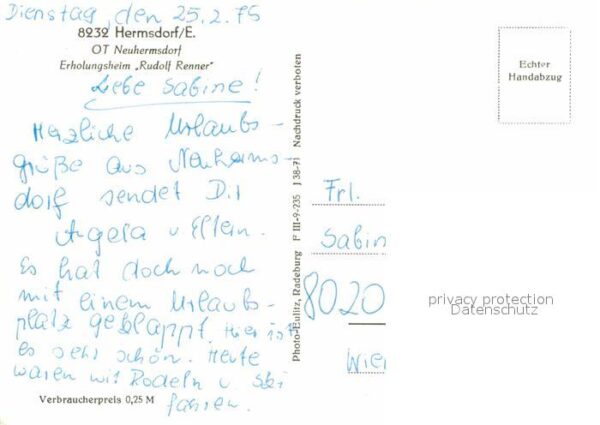 Dienstag, den 25.2.75
8232 Hermsdorf/E.
OT Neuhermsdorf
Erholungsheim „Rudolf Renner"
Liebe Sabine!
Herzliche Urlaubs-
grüße aus Neuherms-
dorf sendet Dir
Angela u Eltern.
Es hat doch noch
mit einem Urlaubs-
platz geklappt. Hier ist
es sehr schön. Heute
waren wir Rodeln u. Ski
fahren.
Verbraucherpreis 0,25 M
Photo-Eulitz, Radeburg F III-9-235 J 38-71 Nachdruck verboten
Echter
Handabzug
Frl.
Sabin
8020
privacy protection
Datenschutz
Wie